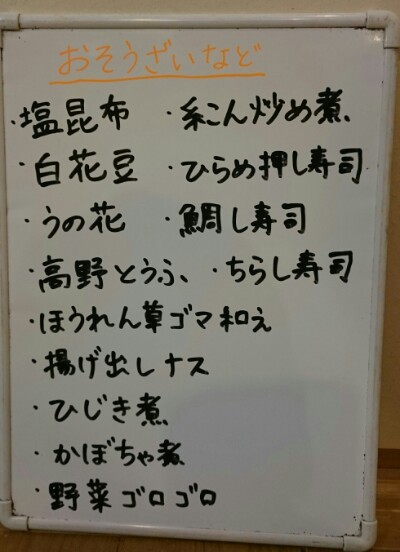 おそうざいなど
・塩昆布 ・糸こん炒め煮、
・白花豆 ・ひらめ押し寿司
・うの花 ・鯛し寿司
・高野とうふ、・ちらし寿司
・ほうれん草ゴマ和え
・揚げ出しナス
・ひじき煮
・かぼちゃ煮
・野菜ゴロゴロ